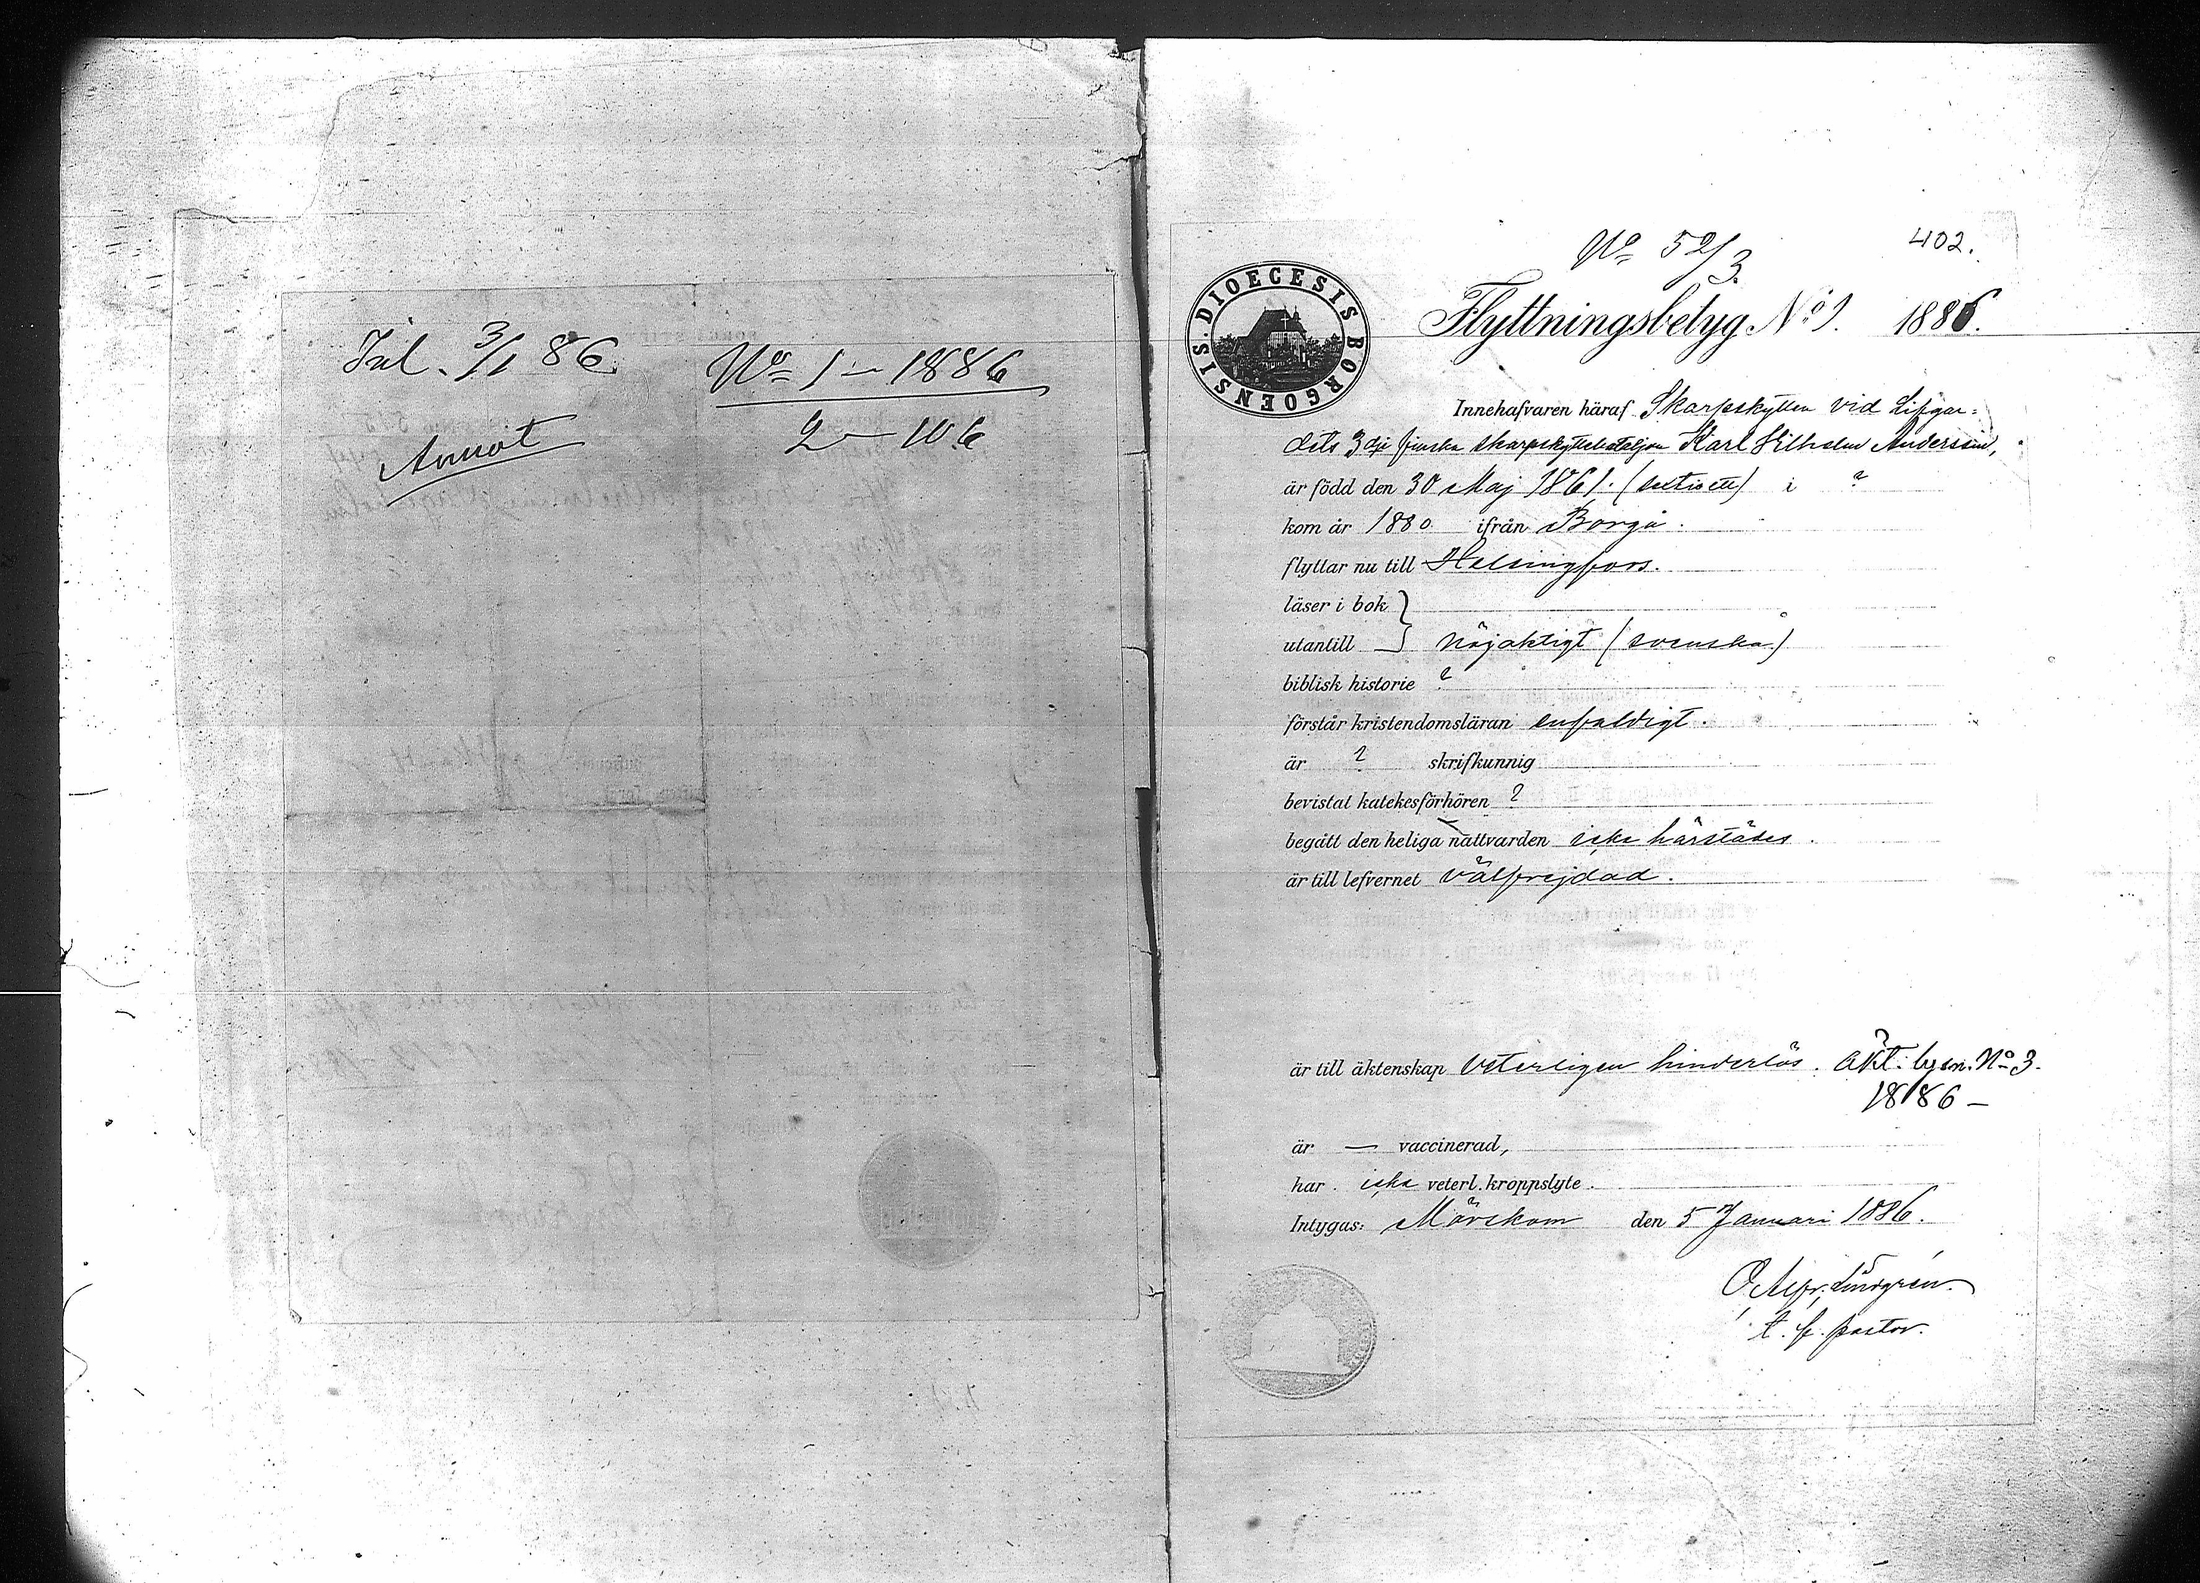 Inl. 3/1 86
Annot
No 1 — 1886
2 — 106
No 52/3
402.
DIOECESIS BORGOENSIS
Flyttningsbetyg No 1. 1886.
Innehafvaren häraf Skarpskytten vid Lifgar=
dets 3dje finska skarpskyttebataljon Karl Vilhelm Andersson,
är född den 30 Maj 1861. (sextioett) i ?
kom år 1880 ifrån Borgå.
flyttar nu till Helsingfors.
läser i bok
utantill } nöjaktigt (svenska)
biblisk historie ?
förstår kristendomsläran enfaldigt.
är ? skrifkunnig
bevistat katekesförhören ?
begått den heliga nattvarden icke härstädes.
är till lefvernet välfrejdad.
är till äktenskap veterligen hinderlös. Äkt. lysn. No 3.
1886 —
är — vaccinerad,
har icke veterl. kroppslyte.
Intygas: Mörskom den 5 Januari 1886.
Lindgrén.
t. f. pastor.